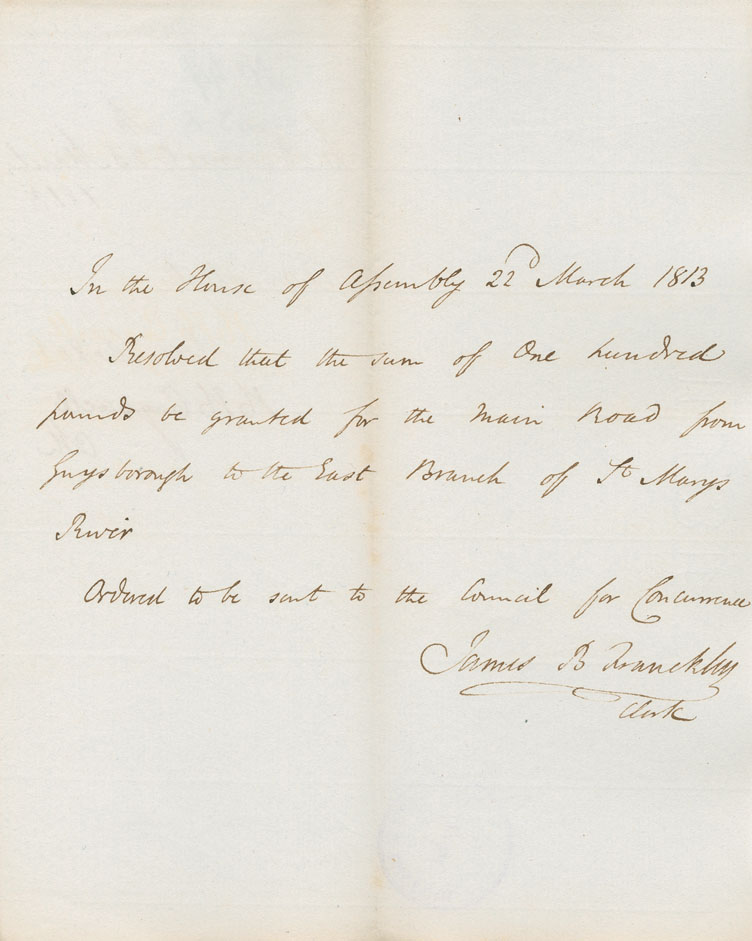 In the House of Assembly 22d March 1813
Resolved that the sum of One hundred
pounds be granted for the Main Road from
Guysborough to the East Branch of St Marys
River
Ordered to be sent to the Council for Concurrence
James B Franckling
Clerk